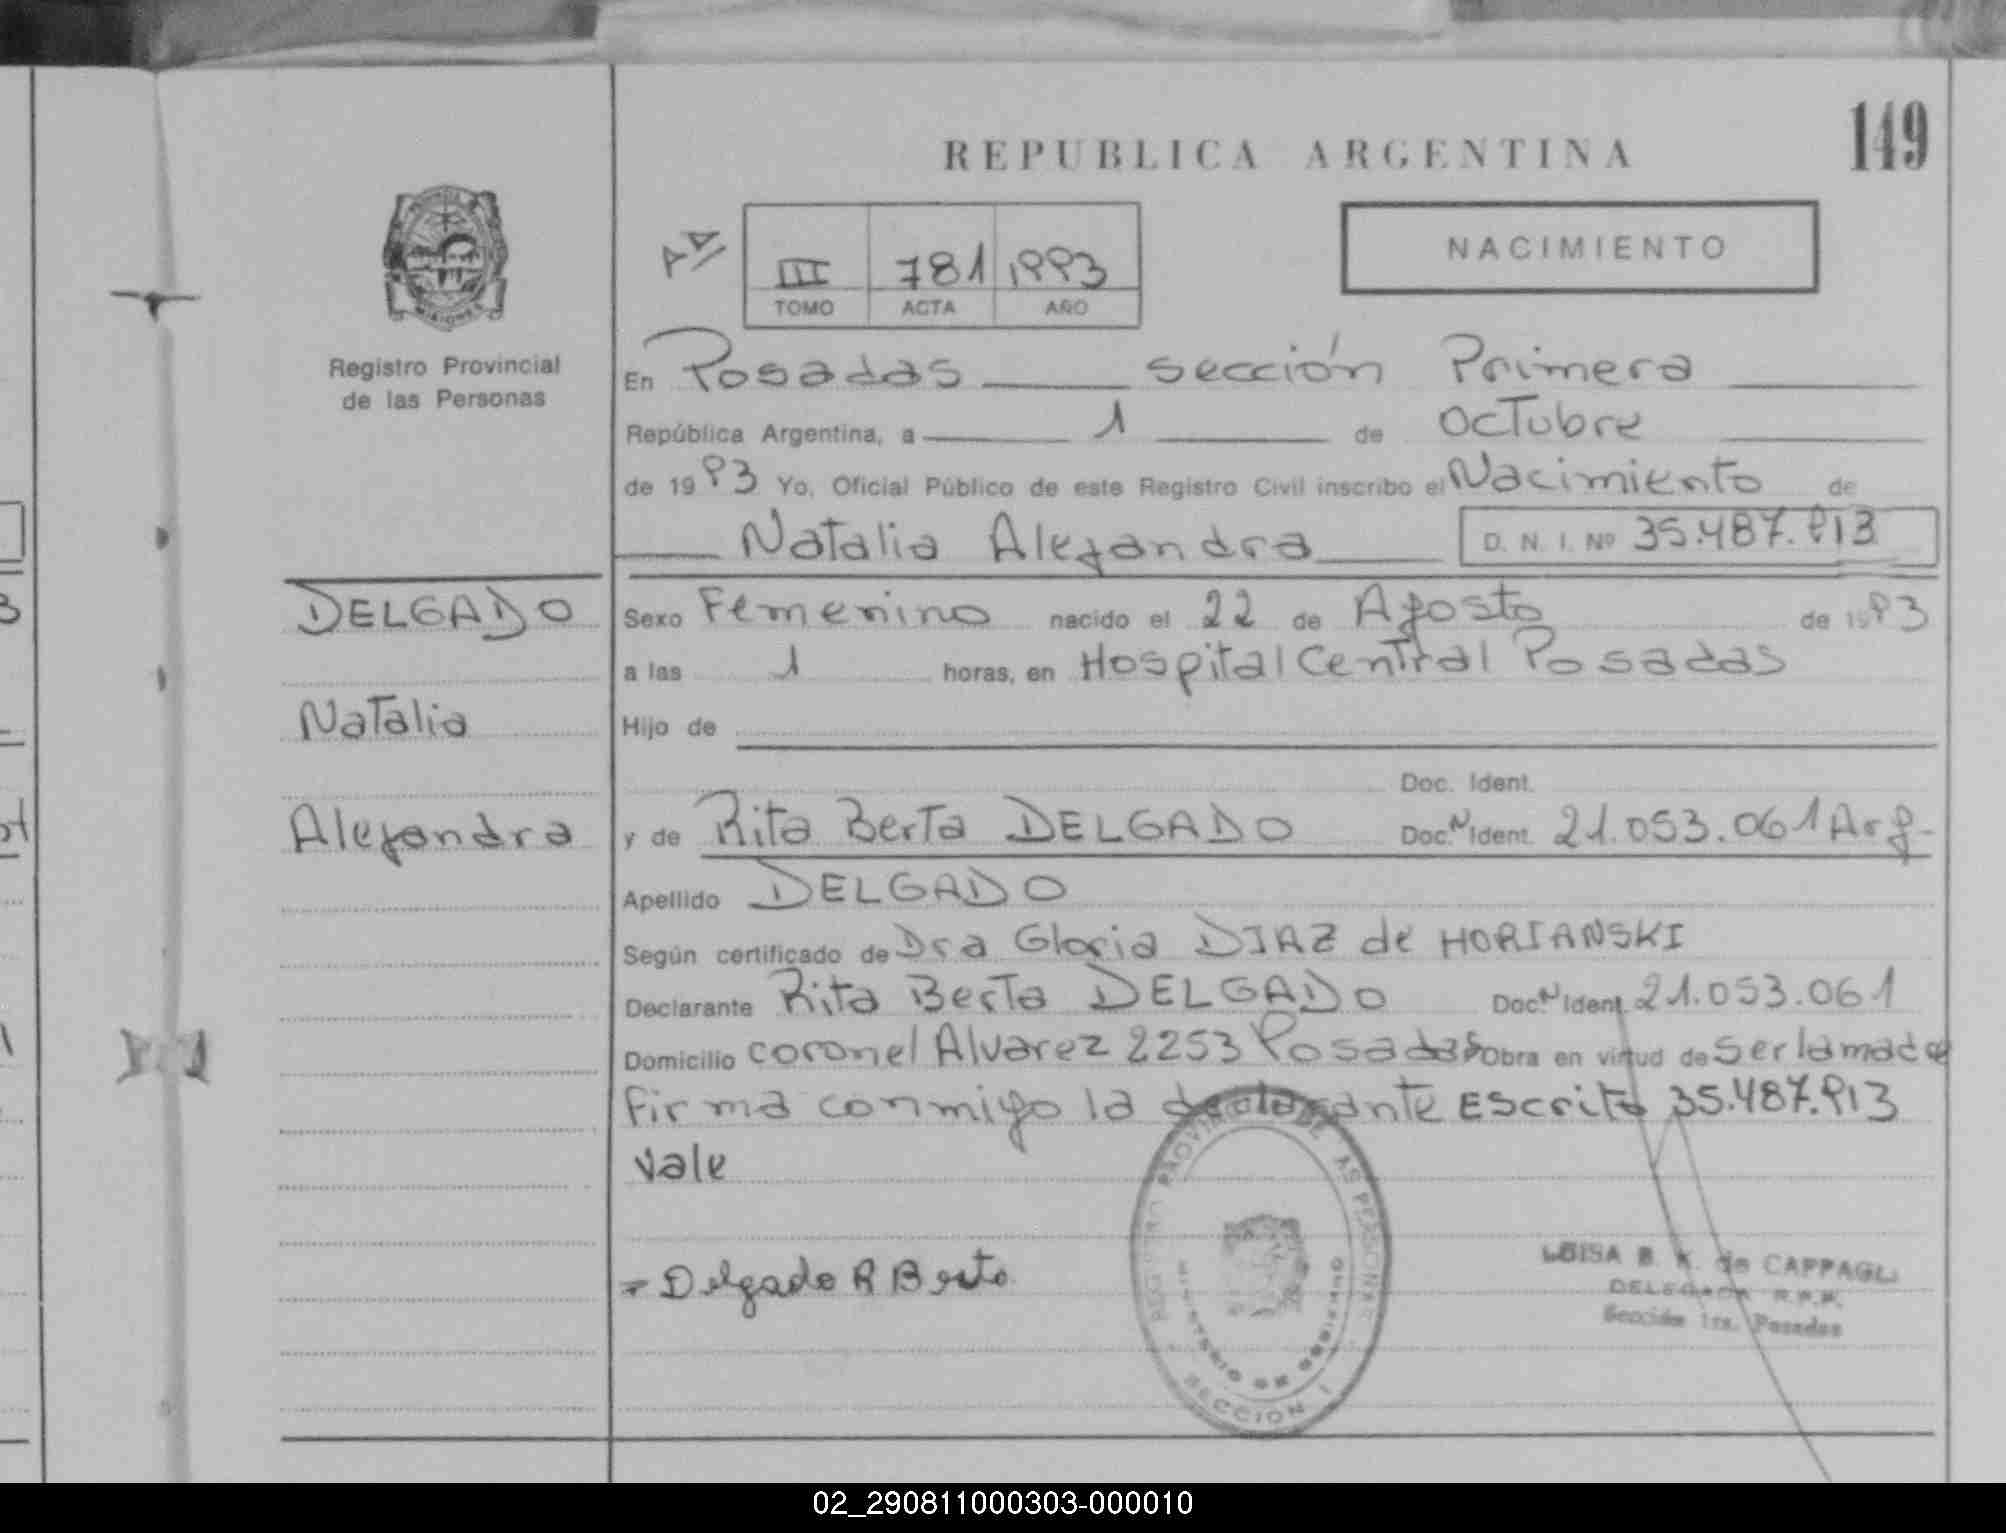 149
REPUBLICA ARGENTINA
NACIMIENTO
III 781 1993
TOMO ACTA AÑO
MISIONES
Registro Provincial
de las Personas
En Posadas sección Primera
República Argentina, a 1 de Octubre
de 1993 Yo, Oficial Público de este Registro Civil inscribo el Nacimiento de
Natalia Alejandra D. N. I. Nº 35.487.913
DELGADO
Natalia
Alejandra
Sexo Femenino nacido el 22 de Agosto de 1993
a las 1 horas, en Hospital Central Posadas
Hijo de
Doc. Ident.
y de Rita Berta DELGADO Doc. N Ident. 21.053.061 Arg.
Apellido DELGADO
Según certificado de Dra Gloria DIAZ de HORIANSKI
Declarante Rita Berta DELGADO Doc. N Ident. 21.053.061
Domicilio coronel Alvarez 2253 Posadas Obra en virtud de ser la madre
firma conmigo la declarante Escrito 35.487.913
vale
Delgado R Berta
REGISTRO PROVINCIAL DE LAS PERSONAS
MINISTERIO DE GOBIERNO
SECCION 1
LUISA B. K. de CAPPAGLI
DELEGADA R.P.P.
Sección 1ra. Posadas
02_290811000303-000010